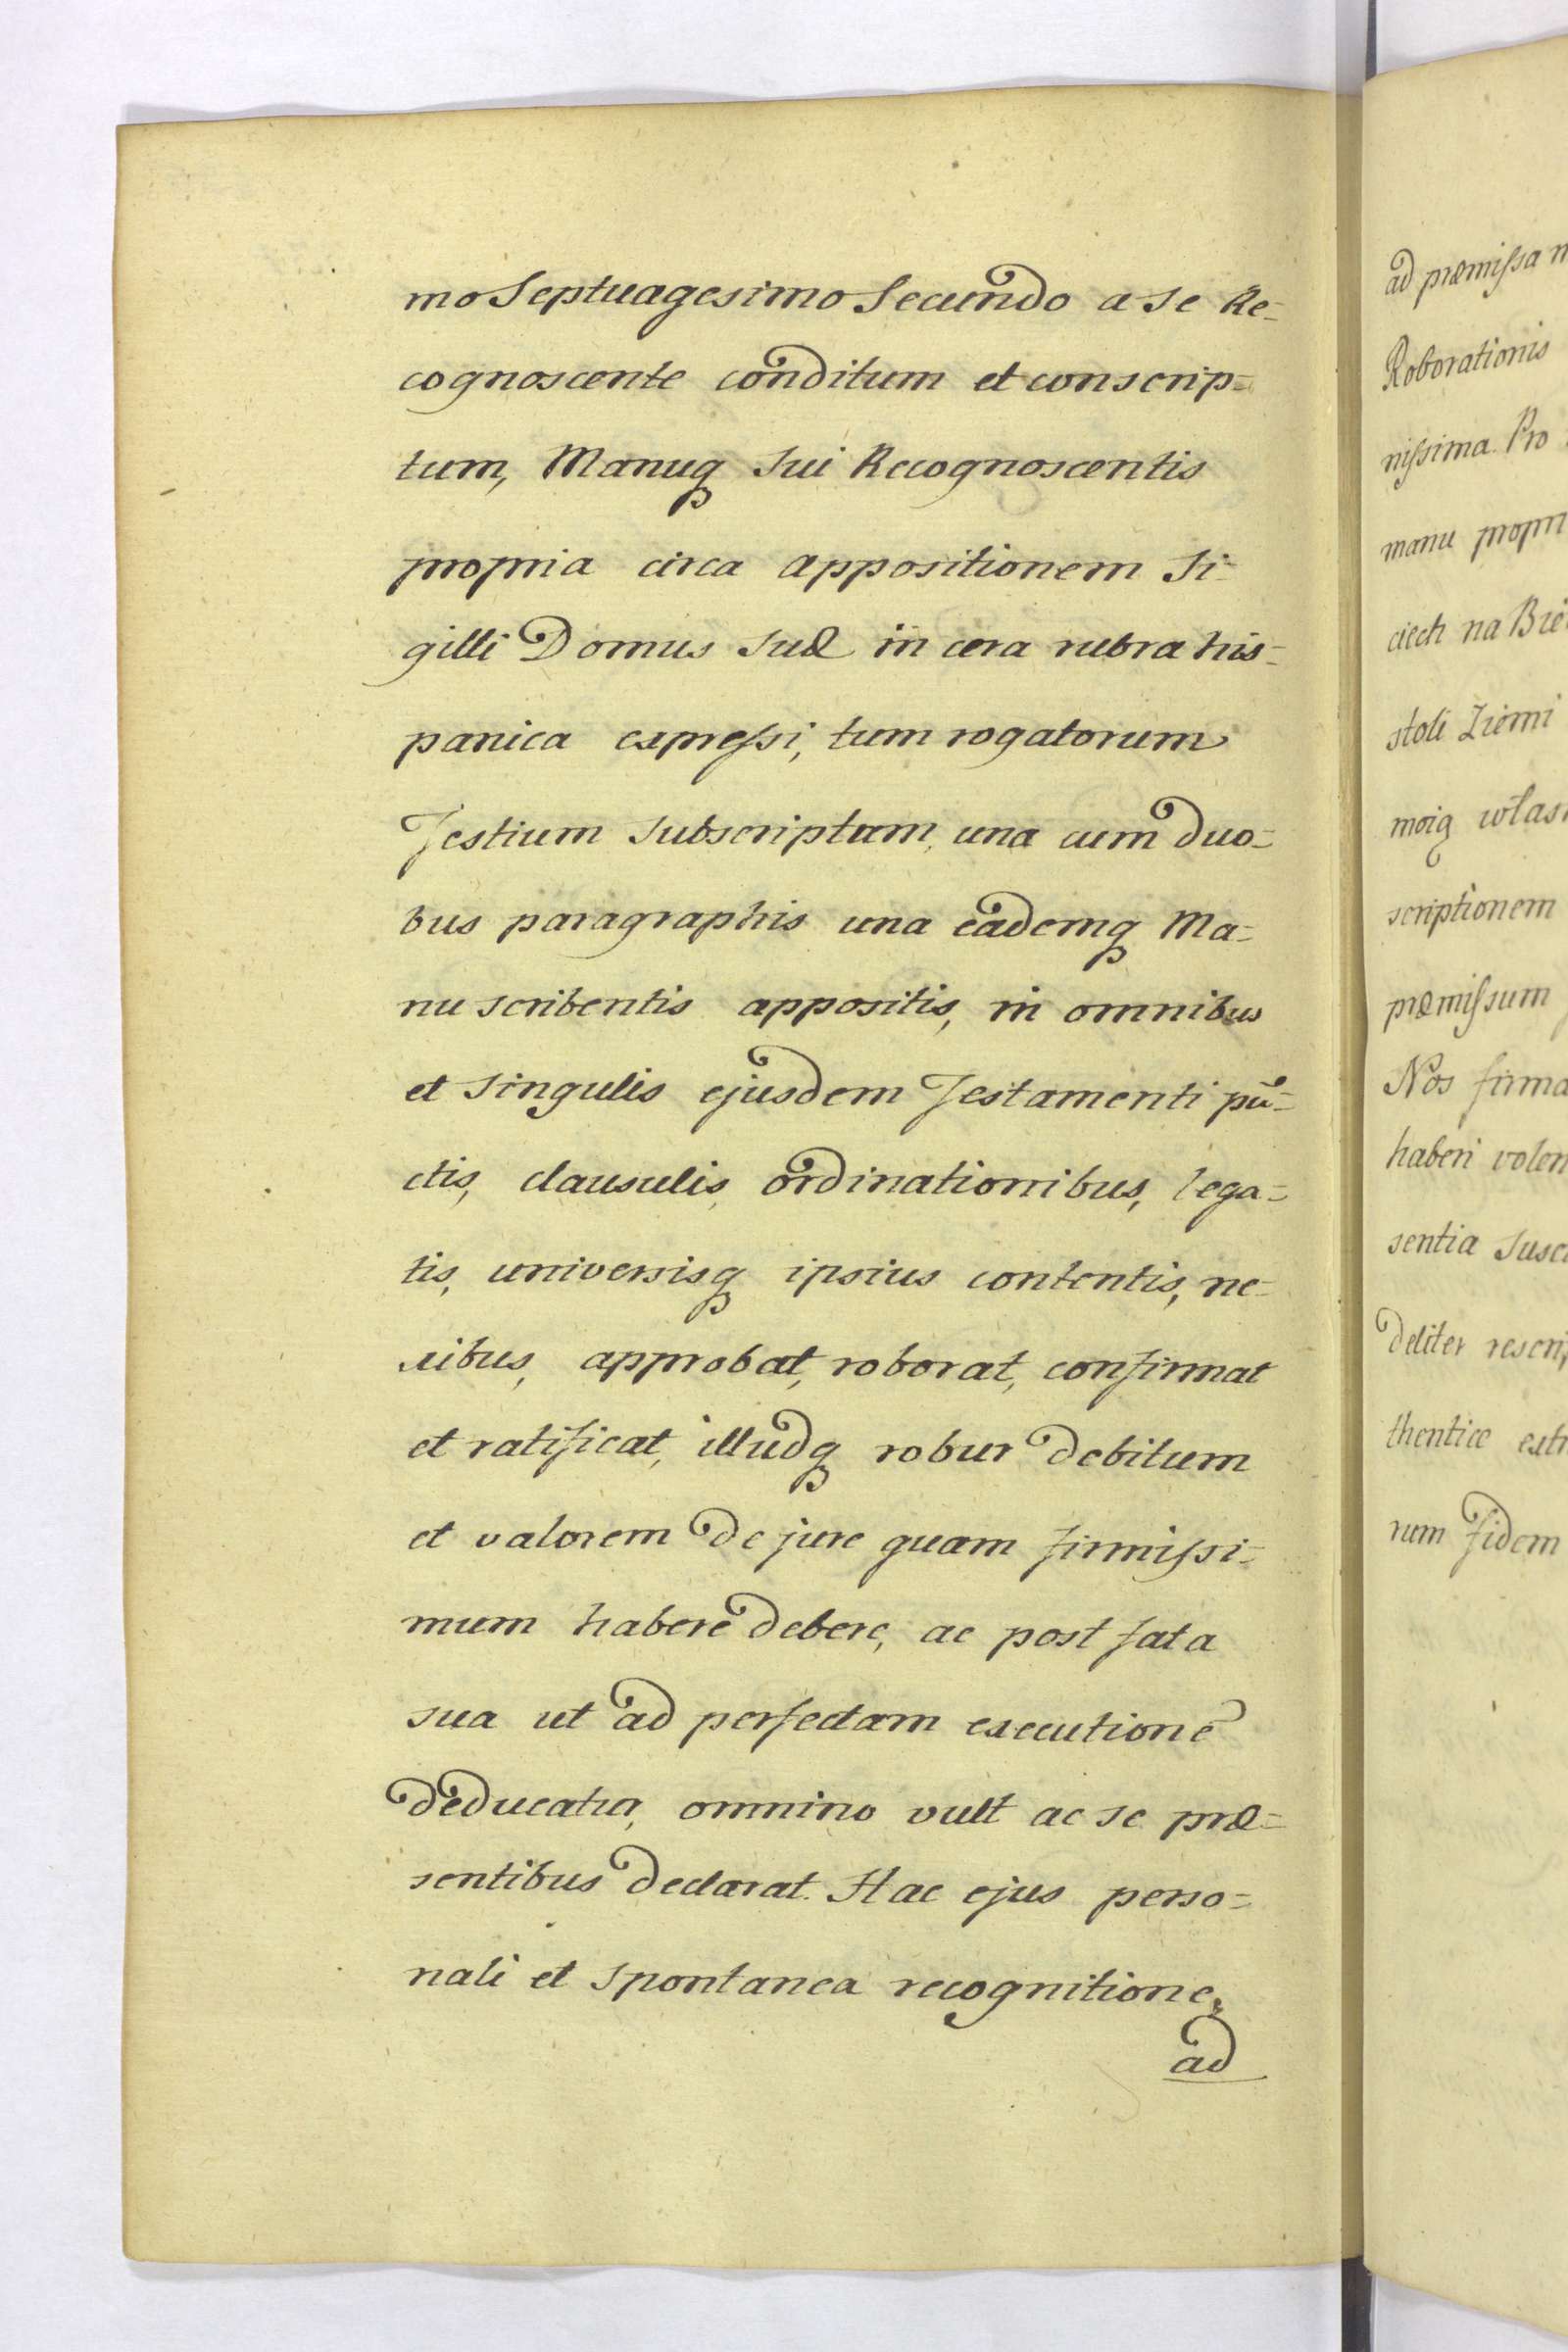 mo Septuagesimo Secundo a se Re=
cognoscente conditum et conscrip=
tum, Manuq sui Recognoscentis
propria circa appositionem Si=
gilli Domus suæ in cera rubra his=
panica expressi, tum rogatorum
Testium subscriptam, una cum duo=
bus paragraphis una eademq Ma=
nu scribentis appositis, in omnibus
et singulis ejusdem Testamenti pũ=
ctis, clausulis, ordinationibus, lega=
tis, universisq ipsius contentis, ne=
xibus, approbat, roborat, confirmat
et ratificat, illudq robur debitum
et valorem de jure quam firmissi=
mum habere debere, ac post fata
sua ut ad perfectam executionẽ
deducatur, omnino vult ac se præ=
sentibus declarat. Hac ejus perso=
nali et spontanea recognitione,
ad
ad præmissa
Roborationis
nissima. Pro
manu propri
ciech na Bie
stoli Ziemi
moią włas
scriptionem
præmissum
Nos firma
haberi volen
sentia susc
deliter rescrip
thentice extr
rum fidem